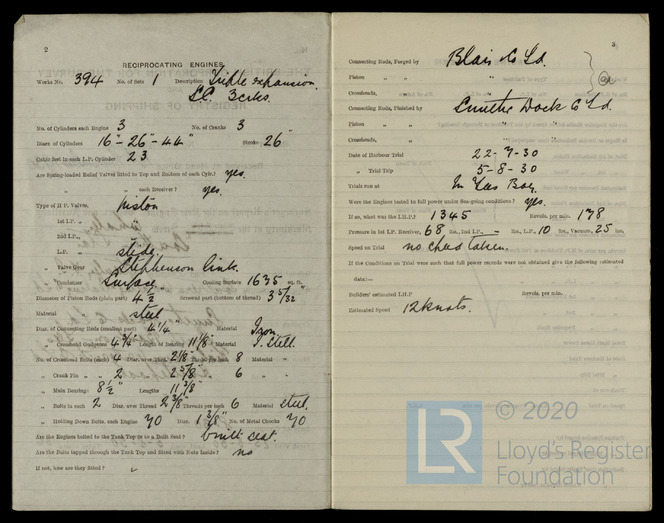 2
RECIPROCATING ENGINES.
Works No. 394 No. of Sets 1 Description Triple expansion.
No. of Cylinders each Engine 3 No. of Cranks 3
Diars. of Cylinders 16" - 26" - 44" Stroke 26"
Cubic feet in each L.P. Cylinder 23
Are Spring-loaded Relief Valves fitted to Top and Bottom of each Cylr.? yes.
„ „ each Receiver? yes.
Type of H.P. Valves, piston
1st I.P. „ „
2nd I.P. „
L.P. „ slide
„ Valve Gear Stephenson link.
„ Condenser Surface. Cooling Surface 1635 sq. ft.
Diameter of Piston Rods (plain part) 4 1/2 Screwed part (bottom of thread) 3 5/32"
Material steel
Diar. of Connecting Rods (smallest part) 4 1/4" Material Iron.
„ Crosshead Gudgeons 4 3/4" Length of Bearing 11 1/8" Material
No. of Crosshead Bolts (each) 4 Diar. over Thrd. 2 1/8" Thrds. per inch 8 Material „
„ Crank Pin „ „ 2 „ 2 5/8" „ 6 „ „
„ Main Bearings 8 1/2" Lengths 11 3/8"
„ Bolts in each 2 Diar. over Thread 2 3/8" Threads per inch 6 Material steel.
„ Holding Down Bolts, each Engine 70 Diar. 1 3/8" No. of Metal Chocks 70
Are the Engines bolted to the Tank Top or to a Built Seat? built seat.
Are the Bolts tapped through the Tank Top and fitted with Nuts Inside? no
If not, how are they fitted?
3
Connecting Rods, Forged by Blair & Co Ld.
Piston „ „
Crossheads, „
Connecting Rods, Finished by Smiths Dock Co Ld.
Piston „ „
Crossheads, „
Date of Harbour Trial 22-7-30
„ Trial Trip 5-8-30
Trials run at In Tees Bay.
Were the Engines tested to full power under Sea-going conditions? yes.
If so, what was the I.H.P.? 1345 Revols. per min. 178
Pressure in 1st I.P. Receiver, 68 lbs., 2nd I.P., — lbs., L.P., 10 lbs., Vacuum, 25 ins.
Speed on Trial no speed taken.
If the Conditions on Trial were such that full power records were not obtained give the following estimated
data:—
Builders' estimated I.H.P. Revols. per min.
Estimated Speed 12 knots.
© 2020
LR
Lloyd's Register
Foundation